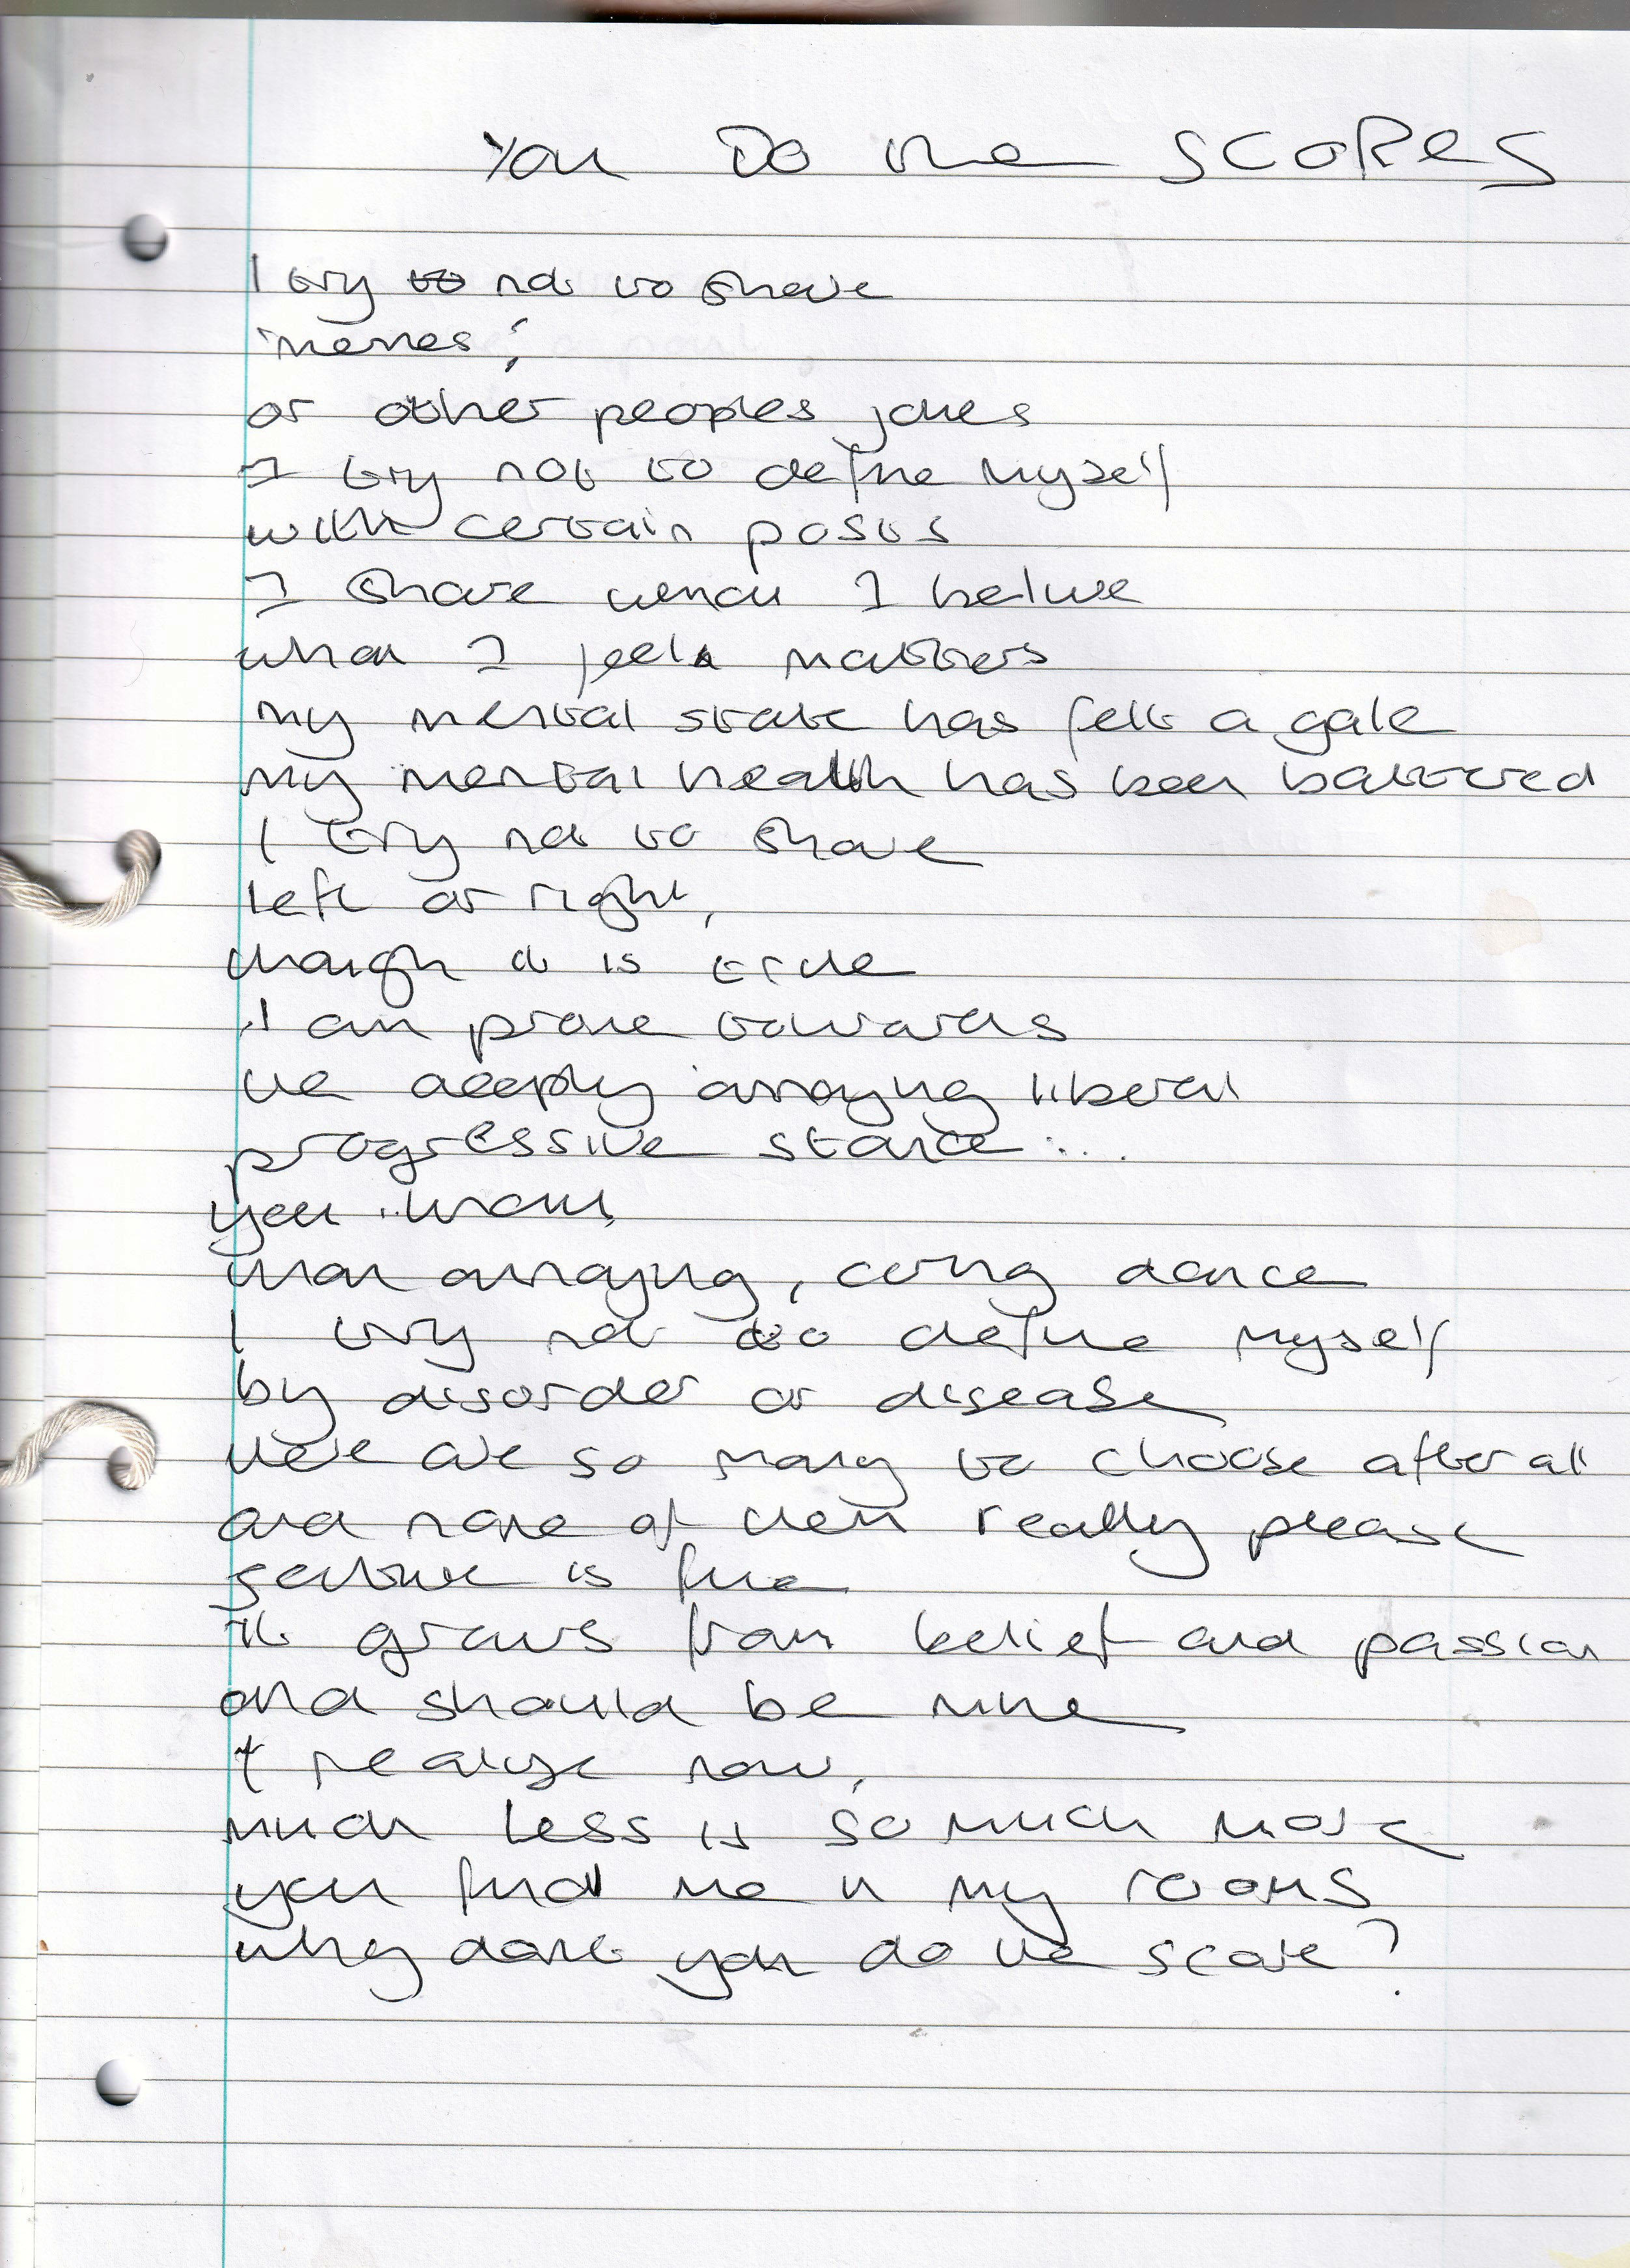 You Do the SCORES
I try to not to share
'memes',
or other peoples jokes
I try not to define myself
with certain posts
I share what I belive
what I feel matters
my mental state has felt a gale
my mental health has been battered
I try not to share
left or right,
though it is true
I am prone towards
the deeply annoying liberal
progressive stance...
you know,
that annoying, caring dance
I try not to define myself
by disorder or disease
there are so many to choose after all
and none of them really please
is fine
it grows from belief and passion
and should be mine
I realise now,
much less is so much more
you find me in my rooms
why dont you do the score?